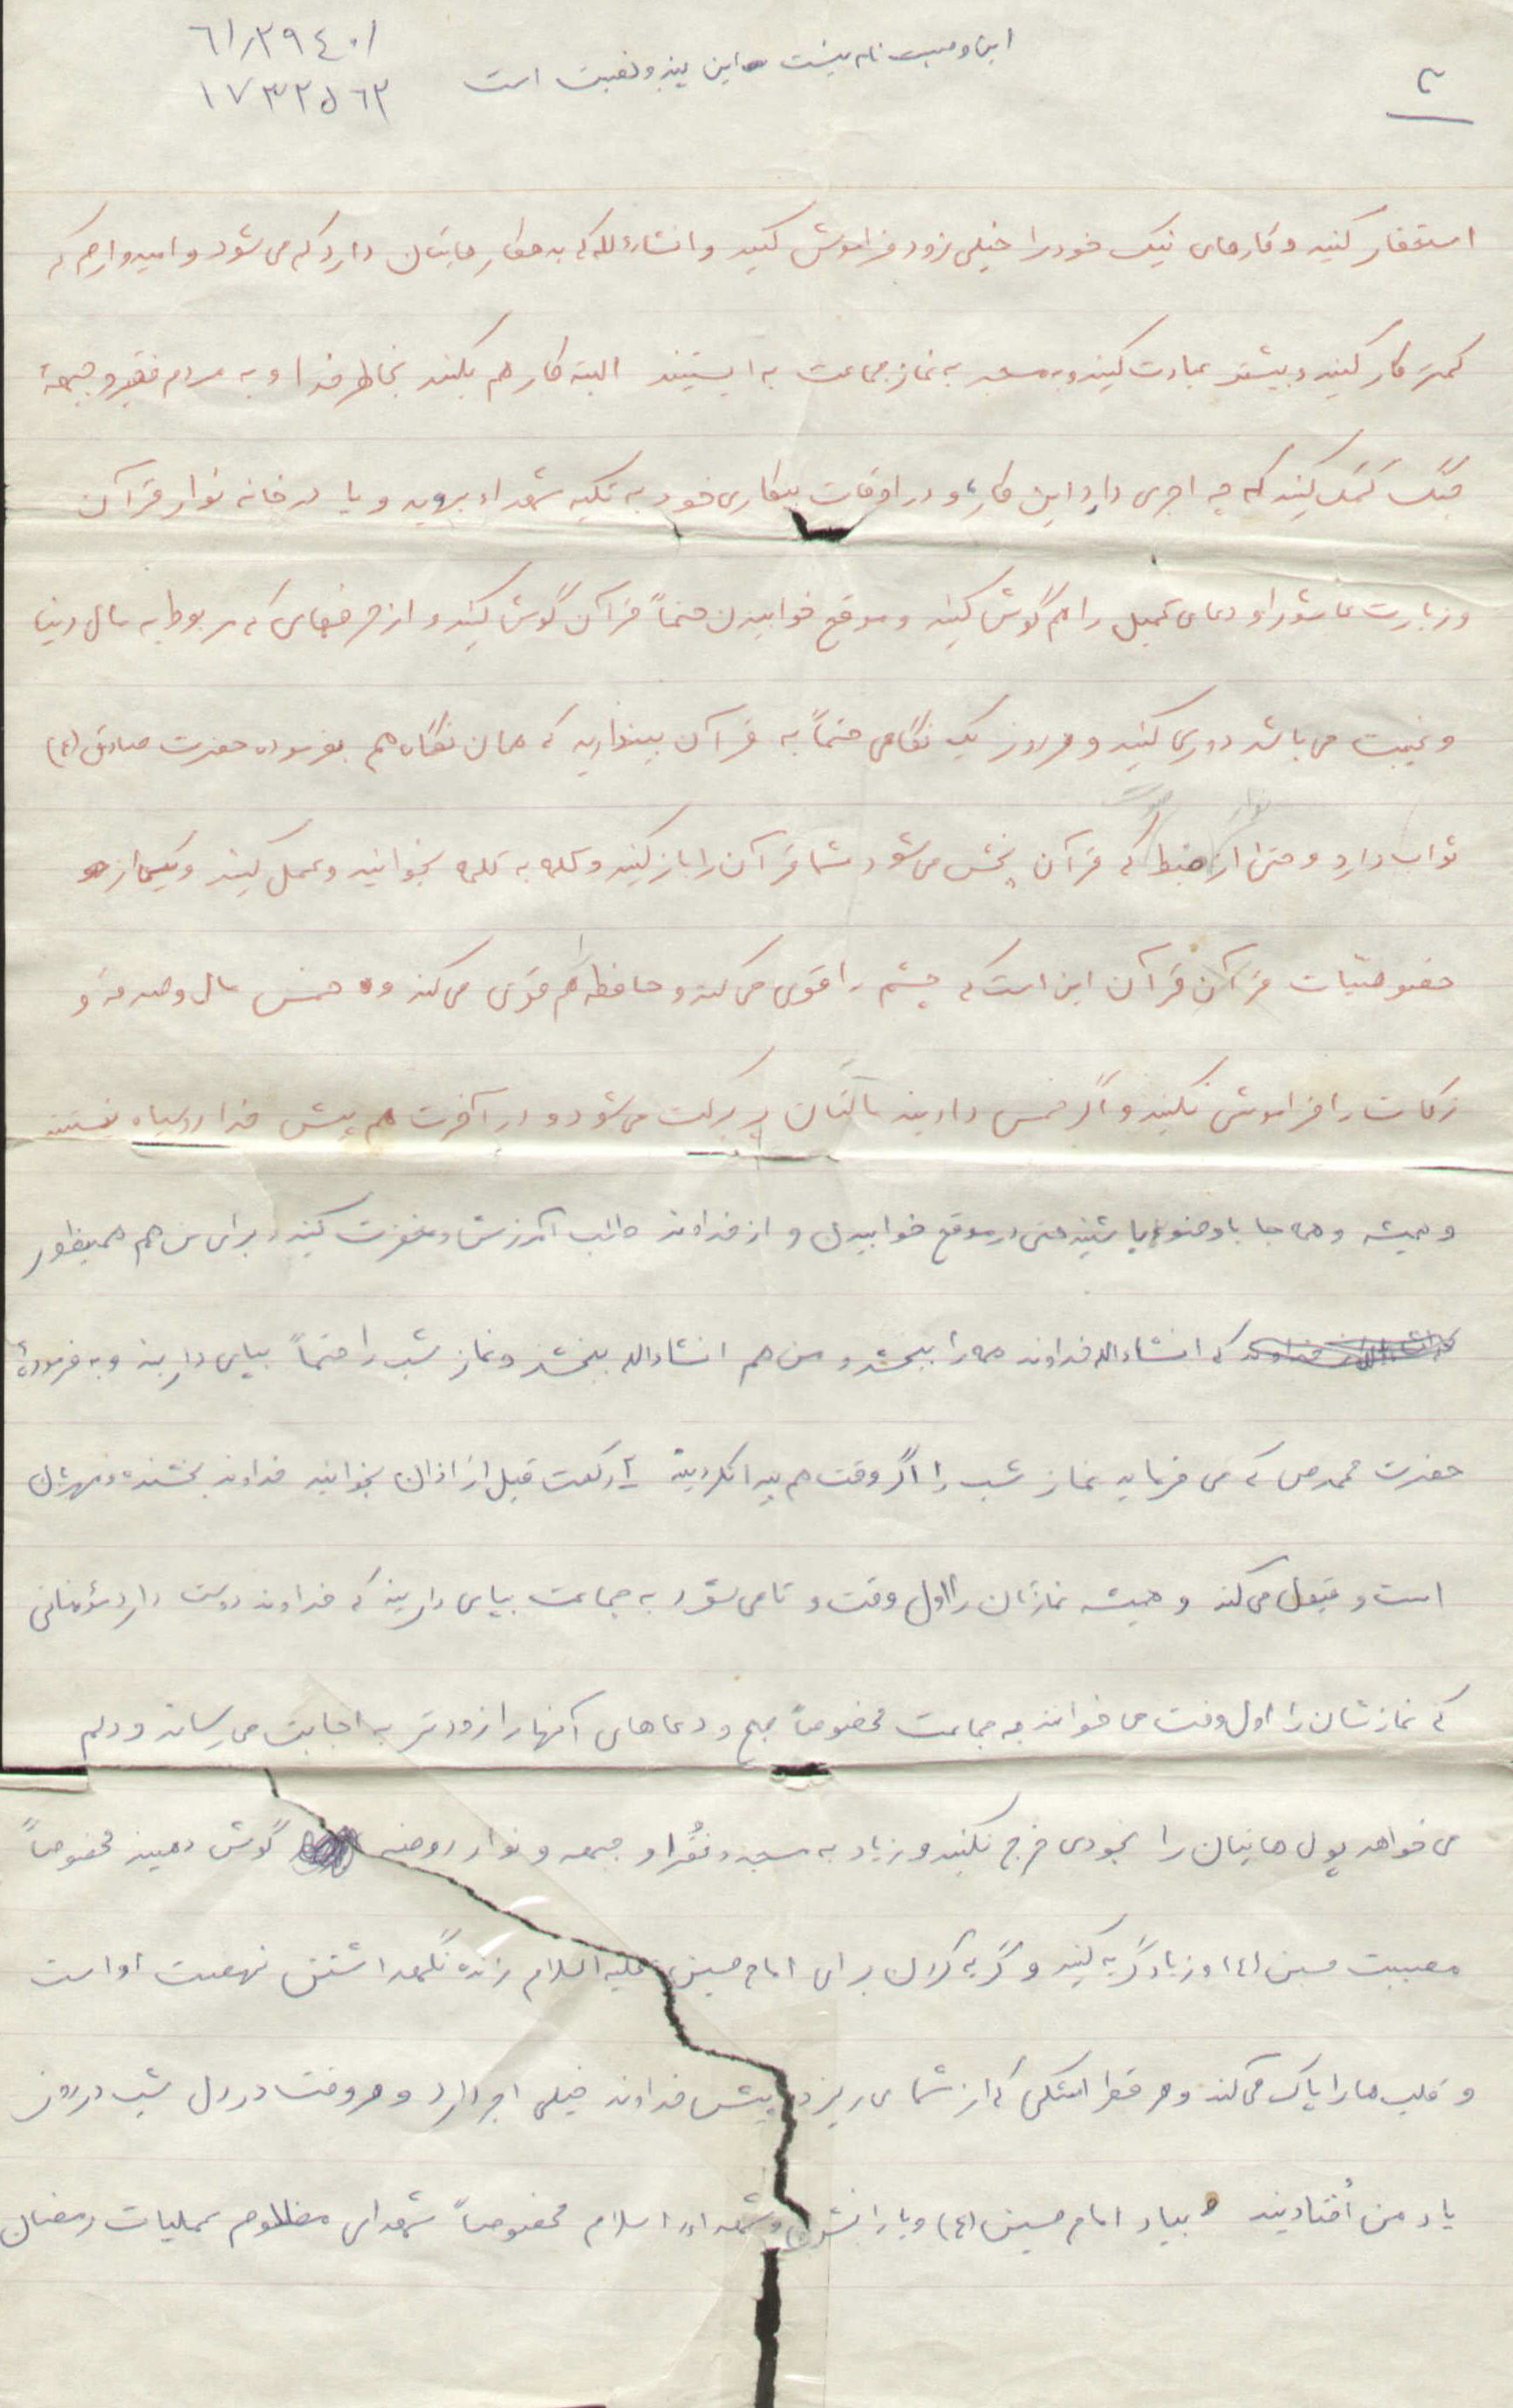 ۶۱٫۲۹۴۰۱
۱۷۳۲۵۶۲
این وصیت نامه نیست این پند و نصیحت است
۲
استغفار کنید و کارهای نیک خود را خیلی زود فراموش کنید و انشاءالله که بدهکارهایتان دارد کم می‌شود و امیدوارم که
کمتر کار کنید و بیشتر عبادت کنید و به مسجد به نماز جماعت به ایستیند البته کار هم بکنید بخاطر خدا و به مردم فقیر و جبههٔ
جنگ کمک کنید که چه اجری دارد این کار، و در اوقات بیکاری خود به تکیه شهداء بروید و یا در خانه نوار قرآن
و زیارت عاشورا و دعای کمیل را هم گوش کنید و موقع خوابیدن حتماً قرآن گوش کنید و از حرفهای که مربوط به مال دنیا
و غیبت می باشد دوری کنید و هر روز یک نگاهی حتماً به قرآن بیندازید که همان نگاه هم بفرموده حضرت صادق (ع)
ثواب دارد و حتی از ضبط که قرآن پخش می شود شما قرآن را باز کنید و کلمه به کلمه بخوانید و عمل کنید و یکی از
خصوصیات قرآن قرآن این است که چشم را قوی می کند و حافظه را هم قوی می کند و خمس مال و صدقه و
زکات را فراموش نکنید و اگر خمس دادیند مالتان پر برکت می شود و در آخرت هم پیش خدا روسیاه نیستند
و همیشه و همه جا با وضوء باشیند حتی در موقع خوابیدن و از خداوند طالب آمرزش و مغفرت کنید و برای من هم همینطور
که انشاءالله خداوند همه را ببخشد و من هم انشاءالله ببخشد و نماز شب را حتماً بپای دارید و به فرمودهٔ
حضرت محمد ص که می فرماید نماز شب را اگر وقت هم پیدا نکردید ۲ رکعت قبل از اذان بخوانید خداوند بخشنده و مهربان
است و قبول می کند و همیشه نمازتان را اول وقت و تا می شود به جماعت بپای دارید که خداوند دوست دارد مؤمنانی
که نمازشان را اول وقت می خوانند به جماعت مخصوصاً صبح و دعاهای آنها را زودتر به اجابت می رساند و دلم
می خواهد پول هایتان را بخودی خرج نکنید و زیاد به مسجد و فقرا و جبهه و نوار روضه گوش دهیند مخصوصاً
مصیبت حسین (ع) و زیاد گریه کنید و گریه کردن برای امام حسین علیه السلام زنده نگهداشتن نهضت او است
و قلب ها را پاک می کند و هر قطر اشکی که از شما می ریزد پیش خداوند خیلی اجر دارد و هر وقت در دل شب در روز
یاد من اُفتادیند بیاد امام حسین (ع) و یارانش و شهداء اسلام مخصوصاً شهدای مظلوم عملیات رمضان